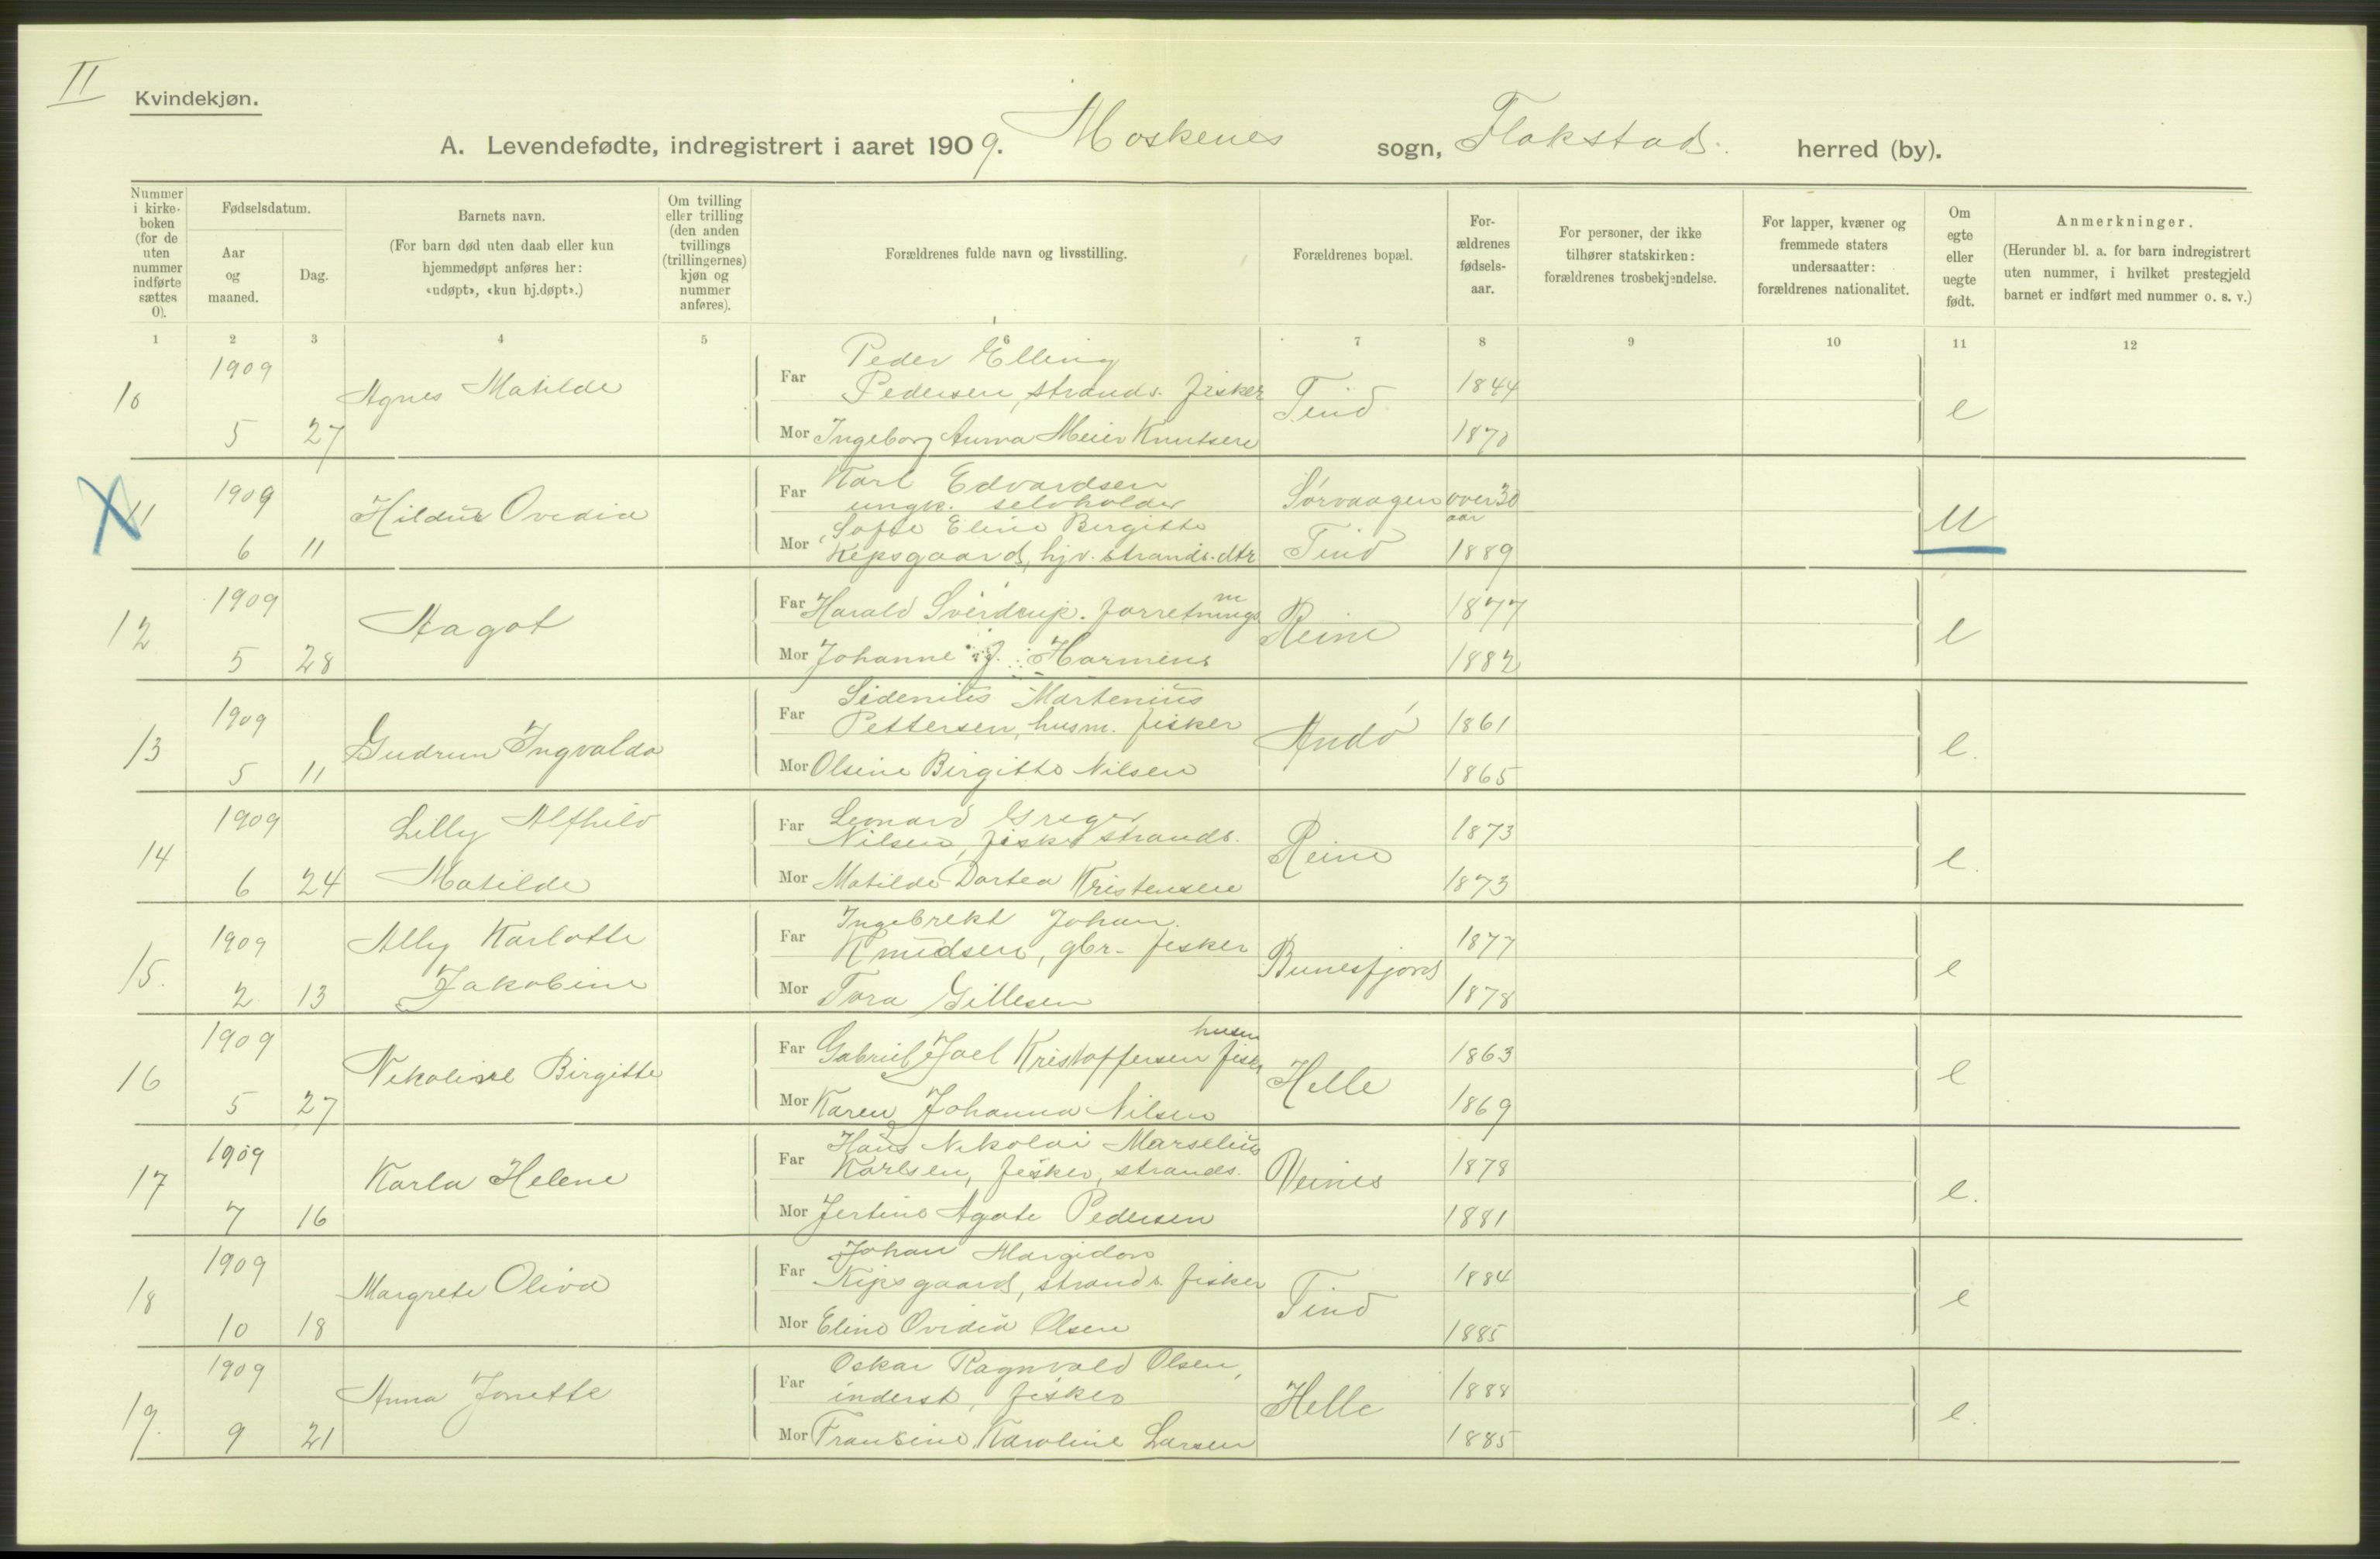 II
Kvindekjøn.
A. Levendefødte, indregistrert i aaret 1909. Moskenes sogn, Flakstad. herred (by).
Nummer i kirke-boken (for de uten nummer indførte sættes 0).
Fødselsdatum.
Aar og maaned.
Dag.
Barnets navn.
(For barn død uten daab eller kun hjemmedøpt anføres her: «udøpt», «kun hj.døpt».)
Om tvilling eller trilling (den anden tvillings (trillingernes) kjøn og nummer anføres).
Forældrenes fulde navn og livsstilling.
Forældrenes bopæl.
For-ældrenes fødsels-aar.
For personer, der ikke tilhører statskirken: forældrenes trosbekjendelse.
For lapper, kvæner og fremmede staters undersaatter: forældrenes nationalitet.
Om egte eller uegte født.
Anmerkninger.
(Herunder bl. a. for barn indregistrert uten nummer, i hvilket prestegjeld barnet er indført med nummer o. s. v.)
1 2 3 4 5 6 7 8 9 10 11 12
10 1909 5 27 Agnes Matilde
Far Peder Elling
Pedersen, strands. fisker Tind 1844 e
Mor Ingeborg Anna Meier Knutsen 1870
11 1909 6 11 Hildur Ovedia
Far Karl Edvardsen
ungk. selvholder Sørvaagen over 30 aar U
Mor Sofie Eline Birgitte
Kepsgaard, hjv. strands. dtr Tind 1889
12 1909 5 28 Aagot
Far Harald Sverdrup. forretnings m Reine 1877 e
Mor Johanne J. Harmens 1882
13 1909 5 11 Gudrun Ingvalda
Far Sidenius Martenius
Pettersen, husm. fisker Andø 1861 e.
Mor Olsine Birgitte Nilsen 1865
14 1909 6 24 Lelly Alfhild
Matilde
Far Leonard Greger
Nilsen, fisker strands. Reine 1873 e.
Mor Matilde Dortea Kristensen 1873
15. 1909 2 13 Ally Karlotte
Jakobine
Far Ingebrekt Johan.
Knudsen, gbr- fisker Bunesfjord 1877 e
Mor Tora Gillesen 1878
16 1909 5 27 Nekoline Birgitte
Far Gabriel Joel Kristoffersen husm fisker Helle 1863 e
Mor Karen Johanna Nilsen 1869
17 1909 7 16 Karla Helene
Far Hans Nikolai Marselius
Karlsen, fisker, strands. Veines 1878 e.
Mor Jertine Agate Pedersen 1881
18 1909 10 18 Margrete Oliva
Far Johan Margidon
Kipsgaard, strands fisker Tind 1884 e
Mor Eline Ovedia Olsen 1885
19. 1909 9 21 Anna Jonette
Far Oskar Ragnvald Olsen,
inderst, fisker Helle 1888 e.
Mor Fransine Karoline Larsen 1885